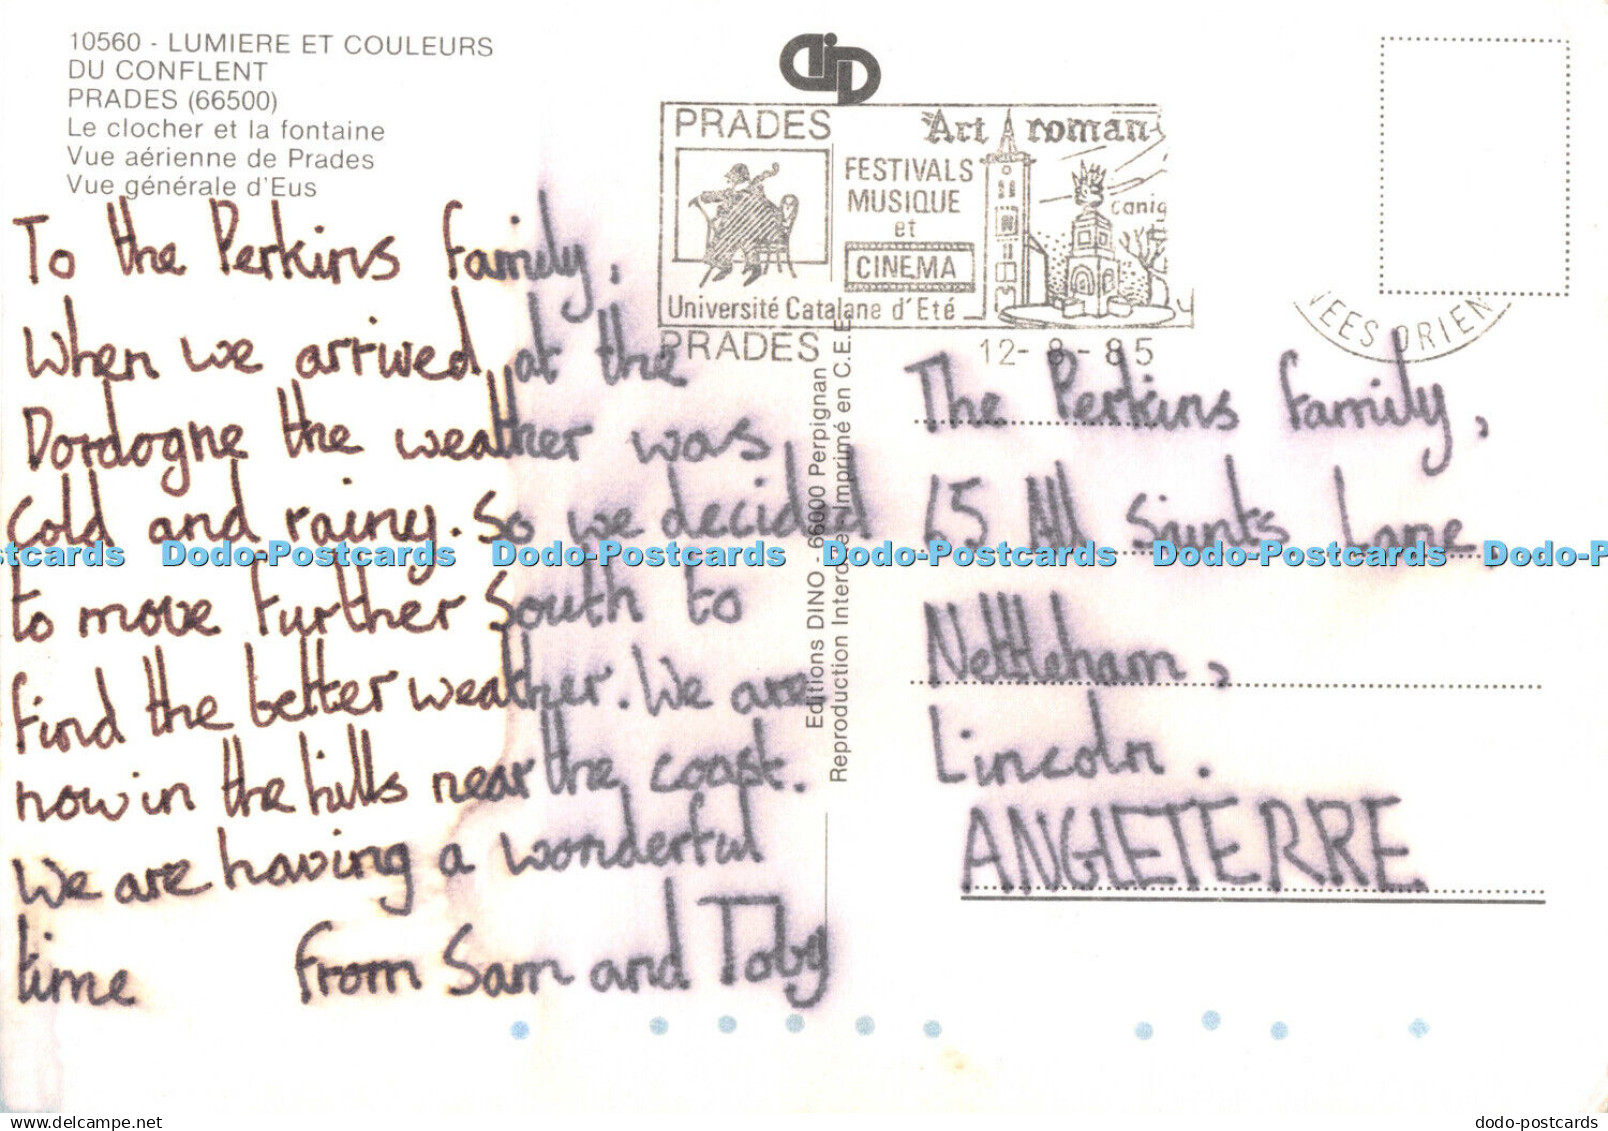 10560 - LUMIERE ET COULEURS
DU CONFLENT
PRADES (66500)
Le clocher et la fontaine
Vue aérienne de Prades
Vue générale d'Eus
To the Perkins family,
When we arrived at the
Dordogne the weather was
cold and rainy. So we decided
to move further South to
find the better weather. We are
now in the hills near the coast.
We are having a wonderful
time From Sam and Toby
PRADES
Art roman
FESTIVALS
MUSIQUE
et
CINEMA
Canig
Université Catalane d'Eté
PRADES 12-8-85
NEES ORIEN
Editions DINO - 66000 Perpignan
Reproduction Interdite - Imprimé en C.E.E
The Perkins family,
15 All Saints Lane,
Nettleham,
Lincoln.
ANGLETERRE
Dodo-Postcards Dodo-Postcards Dodo-Postcards Dodo-Postcards
dodo-postcards
delcampe.net
dodo-postcards